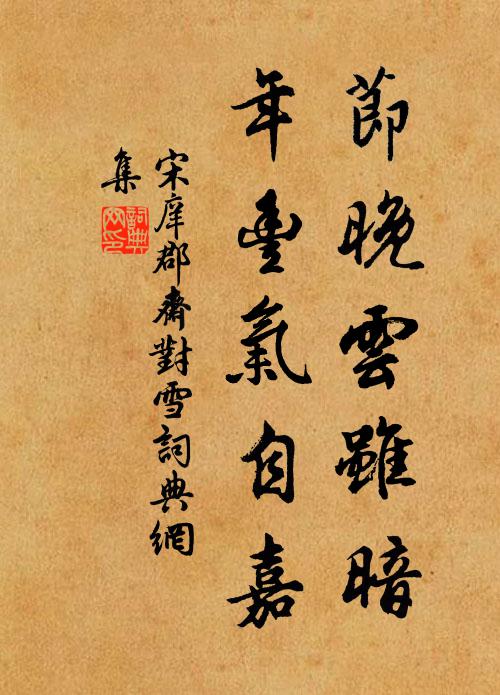 節晚雲雖暗
年豐氣自嘉
宋庠郡齋對雪詞典網
集
詞典網印